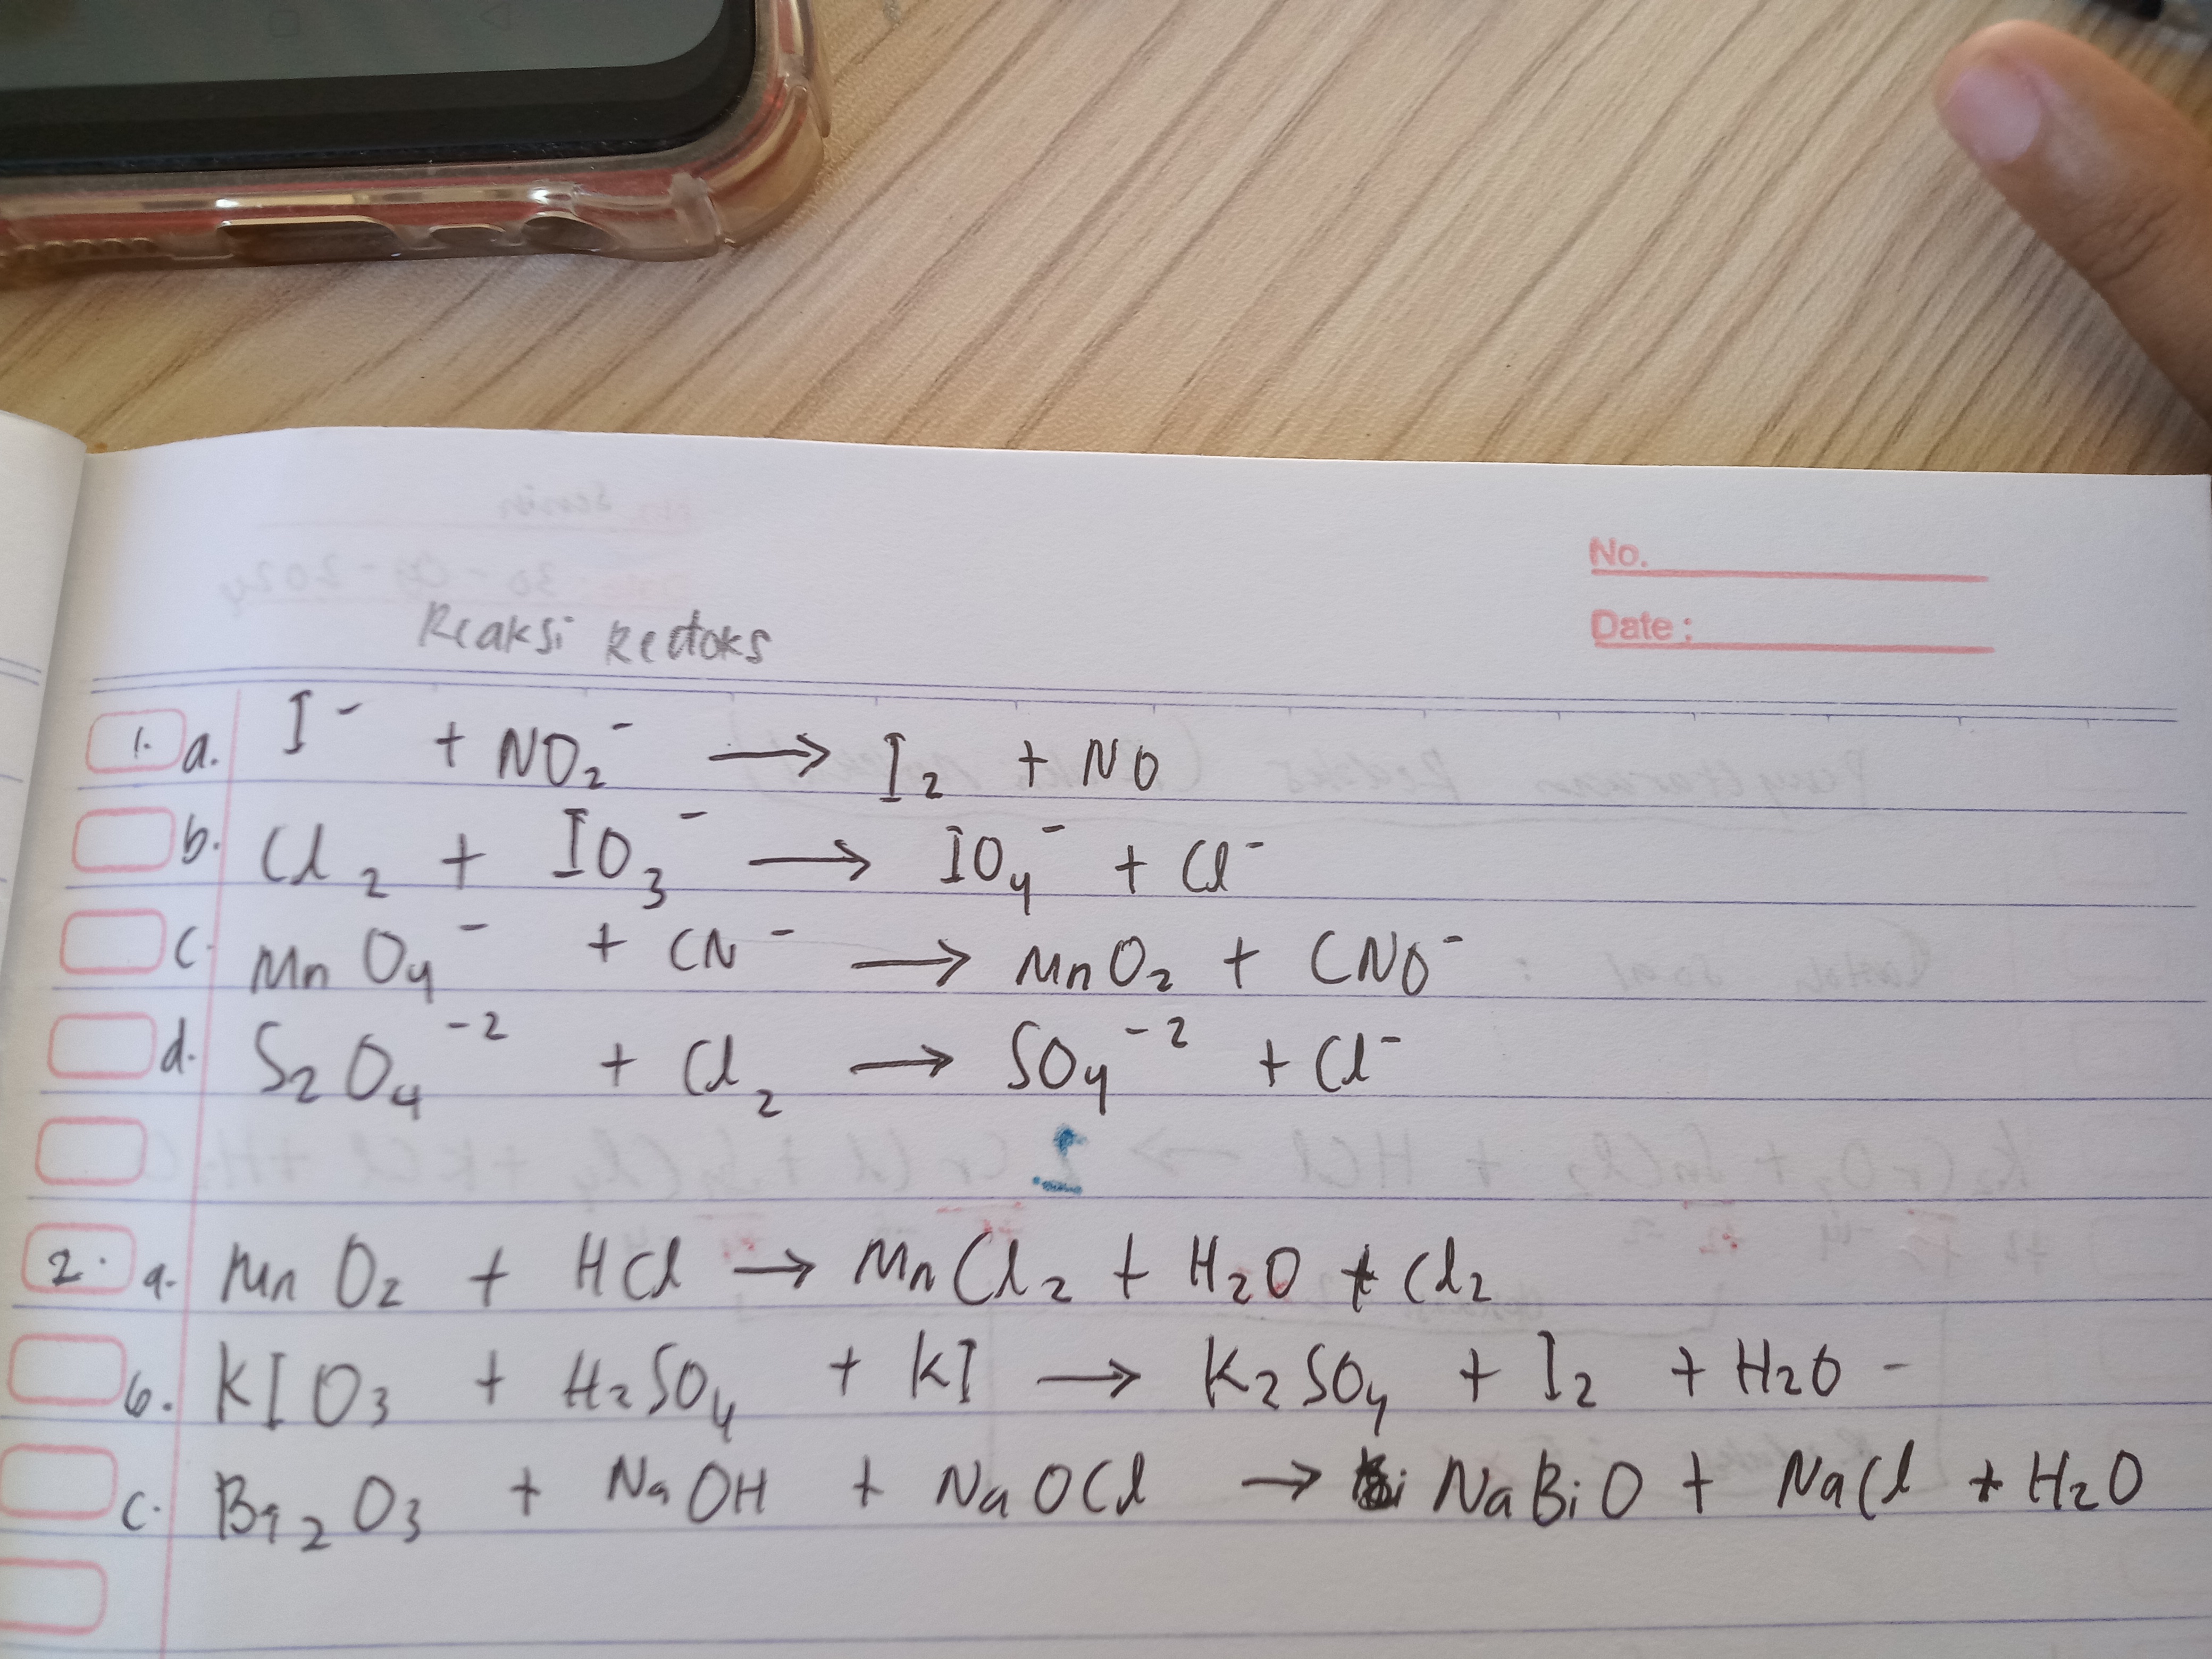 No.
Date :
Reaksi Redoks
1. a. I⁻ + NO₂⁻ → I₂ + NO
b. Cl₂ + IO₃⁻ → IO₄⁻ + Cl⁻
c. MnO₄⁻ + CN⁻ → MnO₂ + CNO⁻
d. S₂O₄⁻² + Cl₂ → SO₄⁻² + Cl⁻
2. a. MnO₂ + HCl → MnCl₂ + H₂O + Cl₂
b. KIO₃ + H₂SO₄ + KI → K₂SO₄ + I₂ + H₂O -
c. Bi₂O₃ + NaOH + NaOCl → NaBiO + NaCl + H₂O